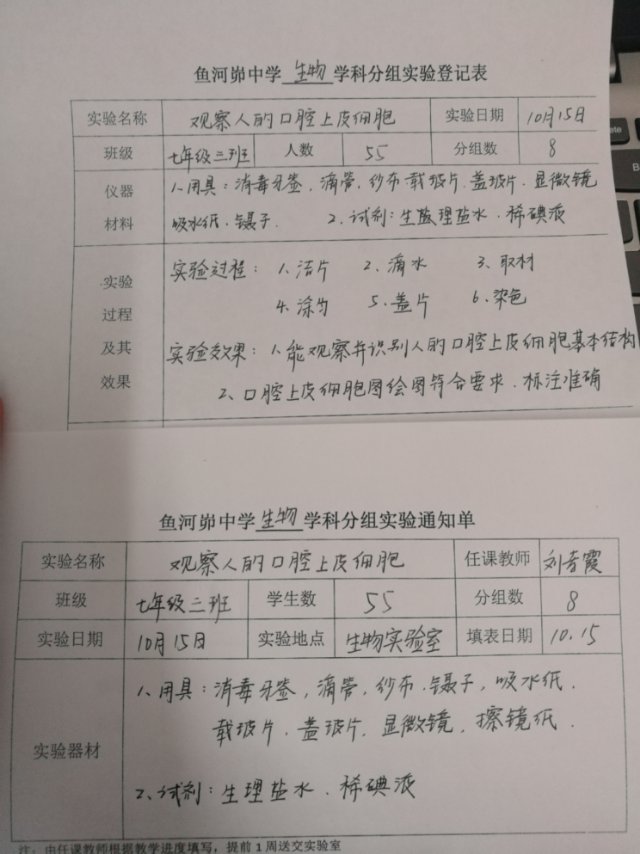 鱼河峁中学 生物 学科分组实验登记表
实验名称 观察人的口腔上皮细胞 实验日期 10月15日
班级 七年级三班 人数 55 分组数 8
仪器材料 1、用具：消毒牙签，滴管，纱布.载玻片.盖玻片.显微镜
吸水纸.镊子. 2、试剂：生理盐水.稀碘液
实验过程及其效果 实验过程：1、洁片 2、滴水 3、取材
4、涂匀 5、盖片 6、染色
实验效果：1、能观察并识别人的口腔上皮细胞基本结构
2、口腔上皮细胞图绘图符合要求.标注准确
鱼河峁中学 生物 学科分组实验通知单
实验名称 观察人的口腔上皮细胞 任课教师 刘霞
班级 七年级三班 学生数 55 分组数 8
实验日期 10月15日 实验地点 生物实验室 填表日期 10.15
实验器材 1、用具：消毒牙签，滴管，纱布.镊子，吸水纸.
载玻片.盖玻片.显微镜，擦镜纸.
2、试剂：生理盐水.稀碘液
注：由任课教师根据教学进度填写，提前1周送交实验室